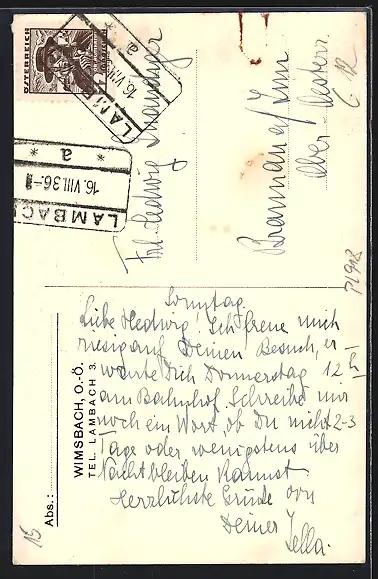 ÖSTERREICH
LAMBACH
16. VIII. 36
* a *
LAMBACH
16. VIII. 36
* a *
Frl. Hedwig
Braunau a/ Inn
Ober-Oesterr.
Sonntag
Liebe Hedwig! Ich freue mich
riesig auf Deinen Besuch, er-
warte Dich Donnerstag 12 h
am Bahnhof. Schreibe mir
noch ein Wort, ob Du nicht 2-3
Tage oder wenigstens über
Nacht bleiben kannst
Herzlichste Grüße von
Deiner
Jella.
Abs.:
WIMSBACH, O.-Ö.
TEL. LAMBACH 3.
15